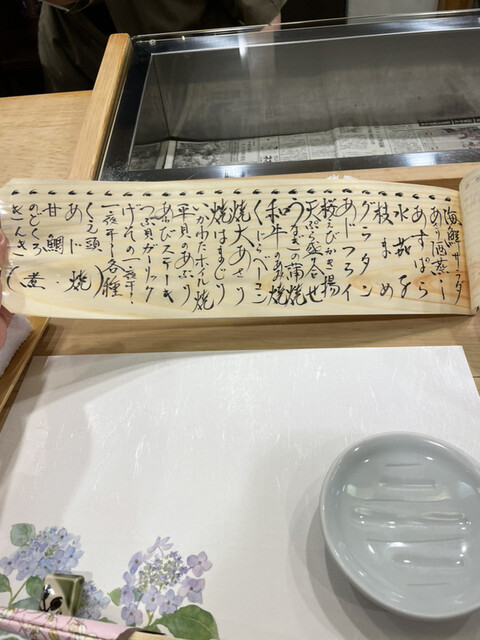 海鮮サラダ
あさり酒蒸し
あすぱら
水茄子
枝まめ
グラタン
あじフライ
桜えびかき揚
天ぷら盛り合せ
うなぎの蒲焼
和牛の串焼
くじらベーコン
焼大あさり
焼はまぐり
いかわたホイル焼
平貝のあぶり
あわびステーキ
つぶ貝ガーリック
げその一夜干し
一夜干し各種
くえ頭
あじ
甘鯛
のどくろ
きんき
(煮・焼)